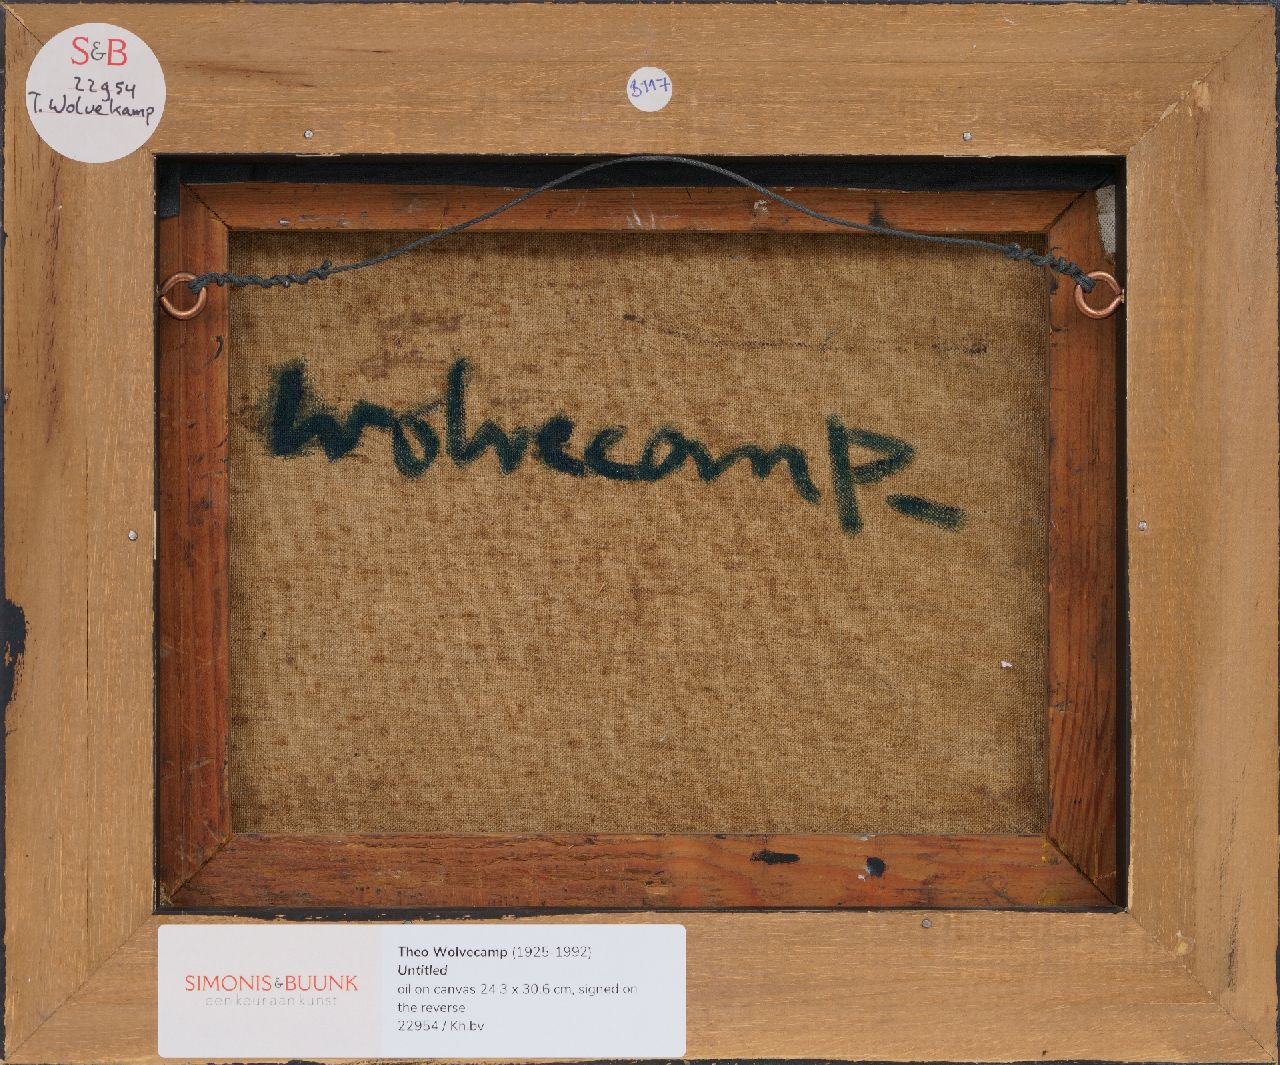 S&B
22954
T. Wolvekamp
B117
Wolvecamp_
SIMONIS&BUUNK
een keur aan kunst
Theo Wolvecamp (1925-1992)
Untitled
oil on canvas 24.3 x 30.6 cm, signed on
the reverse
22954 / Kh.bv